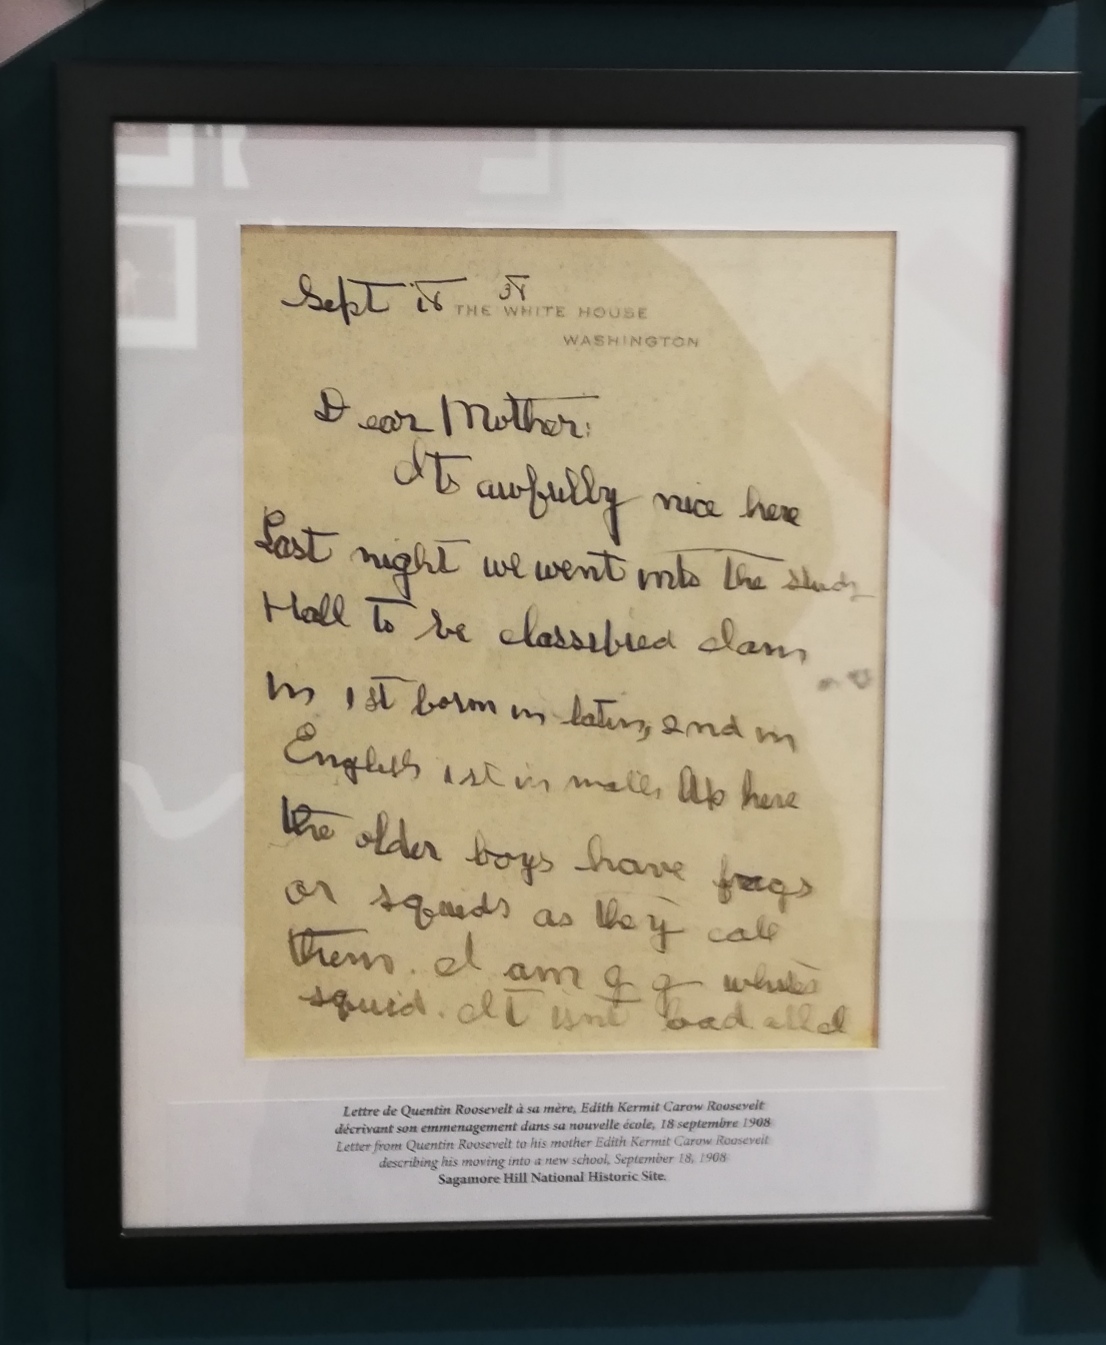 Sept 18
THE WHITE HOUSE
WASHINGTON
Dear Mother:
Its awfully nice here
Last night we went into the study
Hall to be classified
in 1st form in latin, and in
English 1st in math. Up here
the older boys have fags
or squids as they call
them. I am
squid. It isnt bad
Lettre de Quentin Roosevelt à sa mère, Edith Kermit Carow Roosevelt
décrivant son emmenagement dans sa nouvelle école, 18 septembre 1908
Letter from Quentin Roosevelt to his mother Edith Kermit Carow Roosevelt
describing his moving into a new school, September 18, 1908
Sagamore Hill National Historic Site.